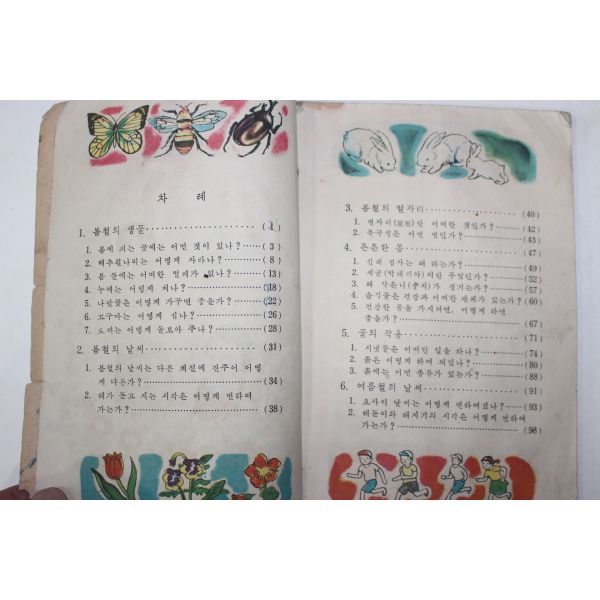 차 례
1. 봄철의 생물 ·················( 1 )
1. 봄에 피는 꽃에는 어떤 것이 있나?······( 3 )
2. 배추흰나비는 어떻게 자라나?·········( 8 )
3. 봄 들에는 어떠한 벌레가 있나?·······(13)
4. 누에는 어떻게 치나?·············(18)
5. 나팔꽃은 어떻게 가꾸면 좋을가?······(22)
6. 고구마는 어떻게 심나?············(26)
7. 토끼는 어떻게 돌보아 주나?·········(28)
2. 봄철의 날씨 ·················(31)
1. 봄철의 날씨는 다른 계절에 견주어 어떻
게 다른가?··················(34)
2. 해가 돋고 지는 시각은 어떻게 변하여
가는가?···················(38)
3. 봄철의 별자리················(40)
1. 별자리(星座)란 어떠한 것인가?······(42)
2. 북극성은 어떤 별인가?···········(43)
4. 튼튼한 몸 ··················(47)
1. 신체 검사는 왜 하는가?···········(49)
2. 세균(박테리아)이란 무엇인가?·······(52)
3. 왜 삭은니(충치)가 생기는가?·······(57)
4. 음식물은 건강과 어떠한 관계가 있는가?(60)
5. 건강한 몸을 가지려면, 어떻게 하면
좋을가?···················(67)
5. 물의 작용 ··················(71)
1. 시냇물은 어떠한 일을 하나?········(74)
2. 흙은 어떻게 하여 되었나?·········(80)
3. 흙에는 어떤 종류가 있는가?········(88)
6. 여름철의 날씨 ················(91)
1. 요사이 날씨는 어떻게 변하여졌나?····(93)
2. 해돋이와 해지기의 시각은 어떻게 변하여
가는가?···················(98)